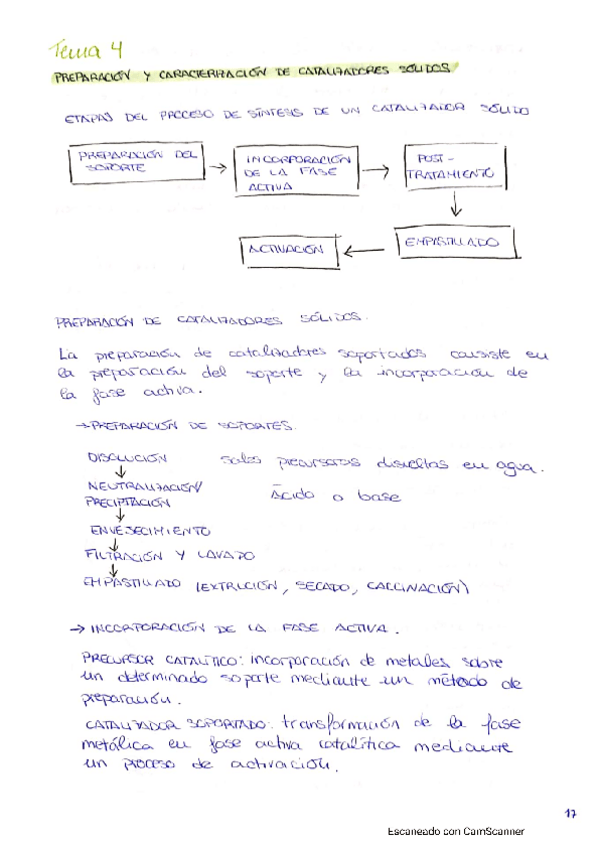 Tema 4
PREPARACIÓN Y CARACTERIZACIÓN DE CATALIZADORES SÓLIDOS
ETAPAS DEL PROCESO DE SÍNTESIS DE UN CATALIZADOR SÓLIDO
PREPARACIÓN DEL
SOPORTE
→
INCORPORACIÓN
DE LA FASE
ACTIVA
→
POST-
TRATAMIENTO
↓
EMPASTILLADO
←
ACTIVACIÓN
PREPARACIÓN DE CATALIZADORES SÓLIDOS.
La preparación de catalizadores soportados consiste en
la preparación del soporte y la incorporación de
la fase activa.
→ PREPARACIÓN DE SOPORTES.
DISOLUCIÓN sales precursoras disueltas en agua.
↓
NEUTRALIZACIÓN/
PRECIPITACIÓN ácido o base
↓
ENVEJECIMIENTO
↓
FILTRACIÓN Y LAVADO
↓
EMPASTILLADO (EXTRUCIÓN, SECADO, CALCINACIÓN)
→ INCORPORACIÓN DE LA FASE ACTIVA.
PRECURSOR CATALÍTICO: incorporación de metales sobre
un determinado soporte mediante un método de
preparación.
CATALIZADOR SOPORTADO: transformación de la fase
metálica en fase activa catalítica mediante
un proceso de activación.
17
Escaneado con CamScanner